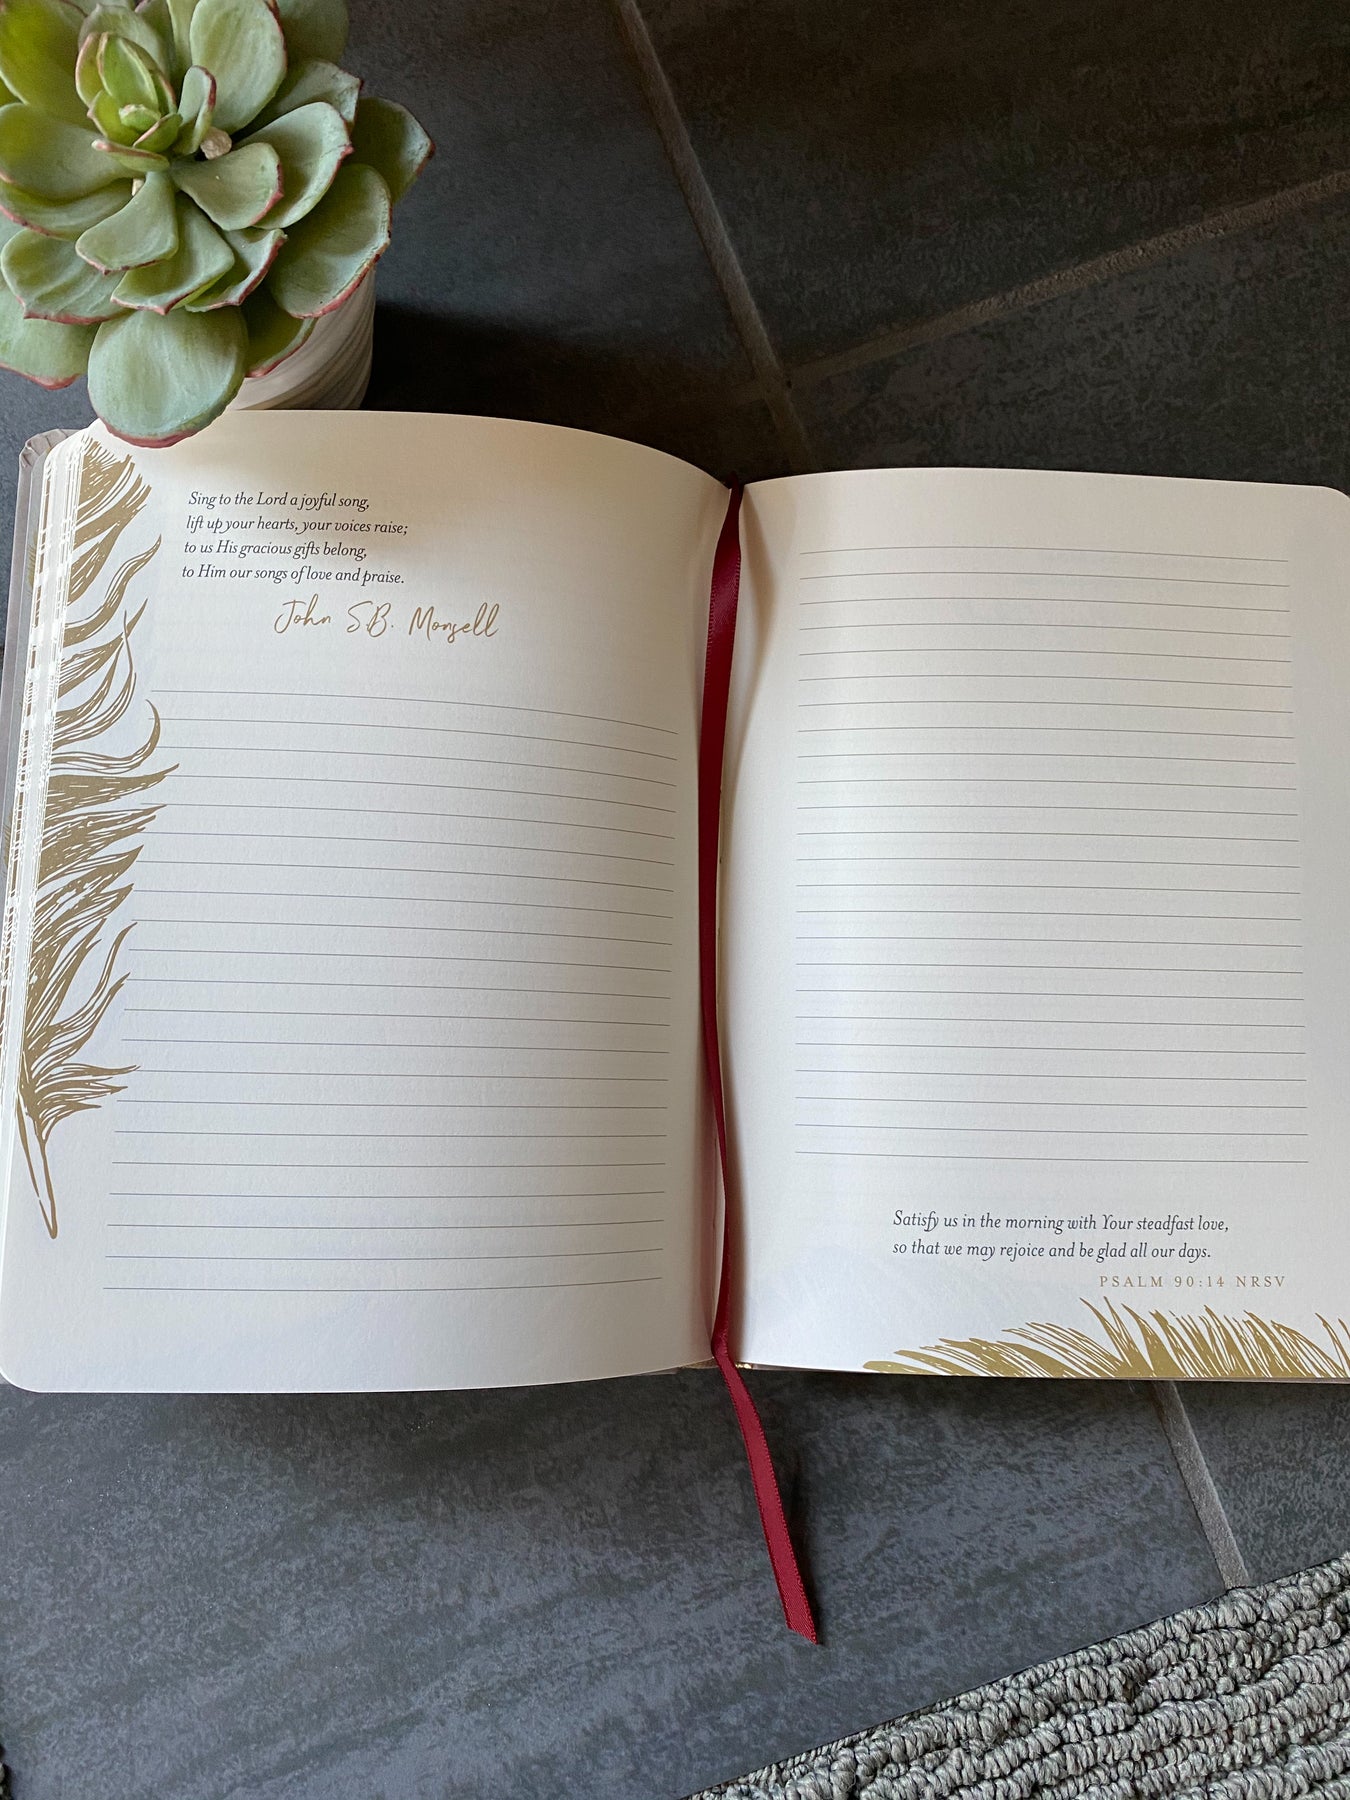 Sing to the Lord a joyful song,
lift up your hearts, your voices raise;
to us His gracious gifts belong,
to Him our songs of love and praise.
John S.B. Monsell
Satisfy us in the morning with Your steadfast love,
so that we may rejoice and be glad all our days.
PSALM 90:14 NRSV